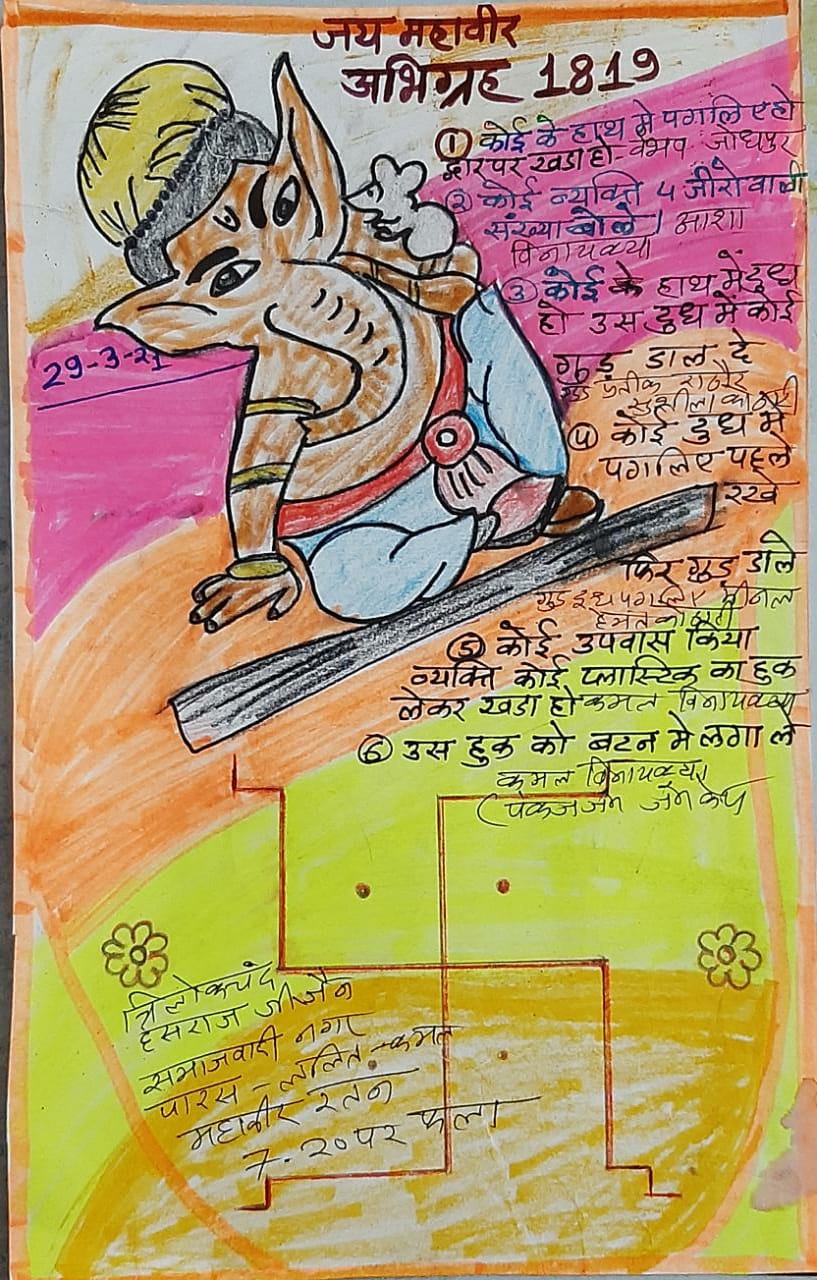 जय महावीर
अभिग्रह 1819
① कोई के हाथ मे पगलिए हो
द्वार पर खडा हो - वैभव जोधपुर
② कोई व्यक्ति 4 जीरो वाली
संख्या बोले / आशा
विनायक्या
③ कोई के हाथ में दुध
हो उस दुध में कोई
29-3-21
गुड डाल दे
गुड प्रतीक राठौर
सुशीला कोठारी
④ कोई दुध मे
पगलिए पहले
रखे
फिर गुड डाले
गुड दुध पगले /
हेमंत कोठारी
⑤ कोई उपवास किया
व्यक्ति कोई प्लास्टिक का हुक
लेकर खडा हो कमल विनायक्या
⑥ उस हुक को बटन मे लगा ले
कमल विनायक्या
(पंकज जैन
त्रिलोकचंद
हसराज जी जैन
समाजवादी नगर
पारस - ललित - कमल
महावीर रतन
7.20 पर फला